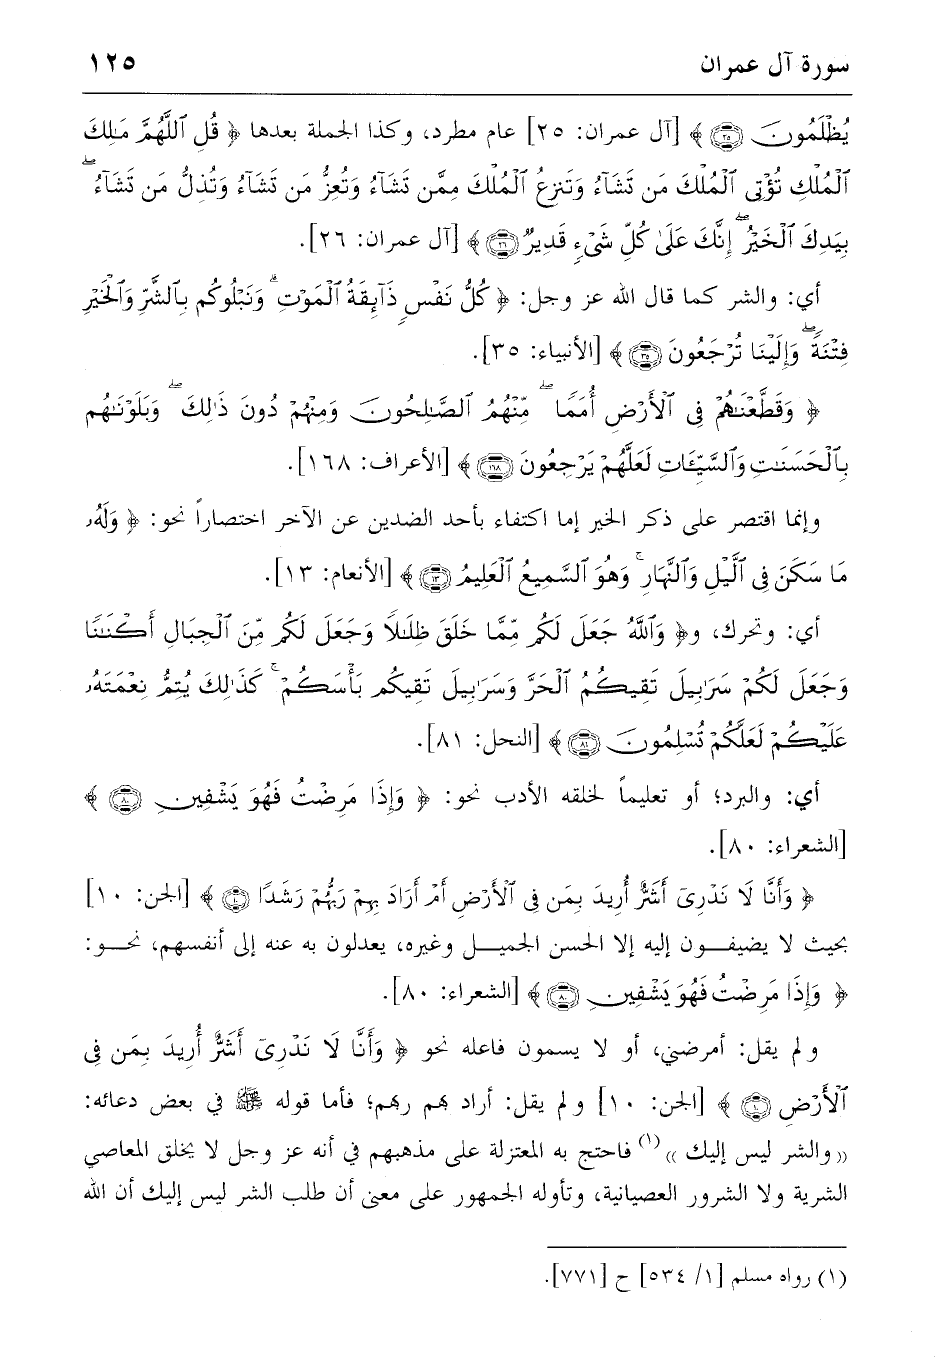 سورة آل عمران ١٢٥
يُظْلَمُونَ ۝٢٥ ﴾ [آل عمران: ٢٥] عام مطرد، وكذا الجملة بعدها ﴿ قُلِ ٱللَّهُمَّ مَٰلِكَ
ٱلْمُلْكِ تُؤْتِى ٱلْمُلْكَ مَن تَشَآءُ وَتَنزِعُ ٱلْمُلْكَ مِمَّن تَشَآءُ وَتُعِزُّ مَن تَشَآءُ وَتُذِلُّ مَن تَشَآءُ ۖ
بِيَدِكَ ٱلْخَيْرُ ۖ إِنَّكَ عَلَىٰ كُلِّ شَىْءٍ قَدِيرٌ ۝٢٦ ﴾ [آل عمران: ٢٦].
أي: والشر كما قال الله عز وجل: ﴿ كُلُّ نَفْسٍ ذَآئِقَةُ ٱلْمَوْتِ ۗ وَنَبْلُوكُم بِٱلشَّرِّ وَٱلْخَيْرِ
فِتْنَةً ۖ وَإِلَيْنَا تُرْجَعُونَ ۝٣٥ ﴾ [الأنبياء: ٣٥].
﴿ وَقَطَّعْنَٰهُمْ فِى ٱلْأَرْضِ أُمَمًا ۖ مِّنْهُمُ ٱلصَّٰلِحُونَ وَمِنْهُمْ دُونَ ذَٰلِكَ ۖ وَبَلَوْنَٰهُم
بِٱلْحَسَنَٰتِ وَٱلسَّيِّـَٔاتِ لَعَلَّهُمْ يَرْجِعُونَ ۝١٦٨ ﴾ [الأعراف: ١٦٨].
وإنما اقتصر على ذكر الخير إما اكتفاء بأحد الضدين عن الآخر اختصاراً نحو: ﴿ وَلَهُۥ
مَا سَكَنَ فِى ٱلَّيْلِ وَٱلنَّهَارِ ۚ وَهُوَ ٱلسَّمِيعُ ٱلْعَلِيمُ ۝١٣ ﴾ [الأنعام: ١٣].
أي: وتحرك، و﴿ وَٱللَّهُ جَعَلَ لَكُم مِّمَّا خَلَقَ ظِلَٰلًا وَجَعَلَ لَكُم مِّنَ ٱلْجِبَالِ أَكْنَٰنًا
وَجَعَلَ لَكُمْ سَرَٰبِيلَ تَقِيكُمُ ٱلْحَرَّ وَسَرَٰبِيلَ تَقِيكُم بَأْسَكُمْ ۚ كَذَٰلِكَ يُتِمُّ نِعْمَتَهُۥ
عَلَيْكُمْ لَعَلَّكُمْ تُسْلِمُونَ ۝٨١ ﴾ [النحل: ٨١].
أي: والبرد؛ أو تعليماً لخلقه الأدب نحو: ﴿ وَإِذَا مَرِضْتُ فَهُوَ يَشْفِينِ ۝٨٠ ﴾
[الشعراء: ٨٠].
﴿ وَأَنَّا لَا نَدْرِىٓ أَشَرٌّ أُرِيدَ بِمَن فِى ٱلْأَرْضِ أَمْ أَرَادَ بِهِمْ رَبُّهُمْ رَشَدًا ۝١٠ ﴾ [الجن: ١٠]
بحيث لا يضيفون إليه إلا الحسن الجميل وغيره، يعدلون به عنه إلى أنفسهم، نحو:
﴿ وَإِذَا مَرِضْتُ فَهُوَ يَشْفِينِ ۝٨٠ ﴾ [الشعراء: ٨٠].
ولم يقل: أمرضني، أو لا يسمون فاعله نحو ﴿ وَأَنَّا لَا نَدْرِىٓ أَشَرٌّ أُرِيدَ بِمَن فِى
ٱلْأَرْضِ ۝١٠ ﴾ [الجن: ١٠] ولم يقل: أراد بهم ربهم؛ فأما قوله ﷺ في بعض دعائه:
«والشر ليس إليك»(١) فاحتج به المعتزلة على مذهبهم في أنه عز وجل لا يخلق المعاصي
الشرية ولا الشرور العصيانية، وتأوله الجمهور على معنى أن طلب الشر ليس إليك أن الله
(١) رواه مسلم [١/ ٥٣٤] ح [٧٧١].